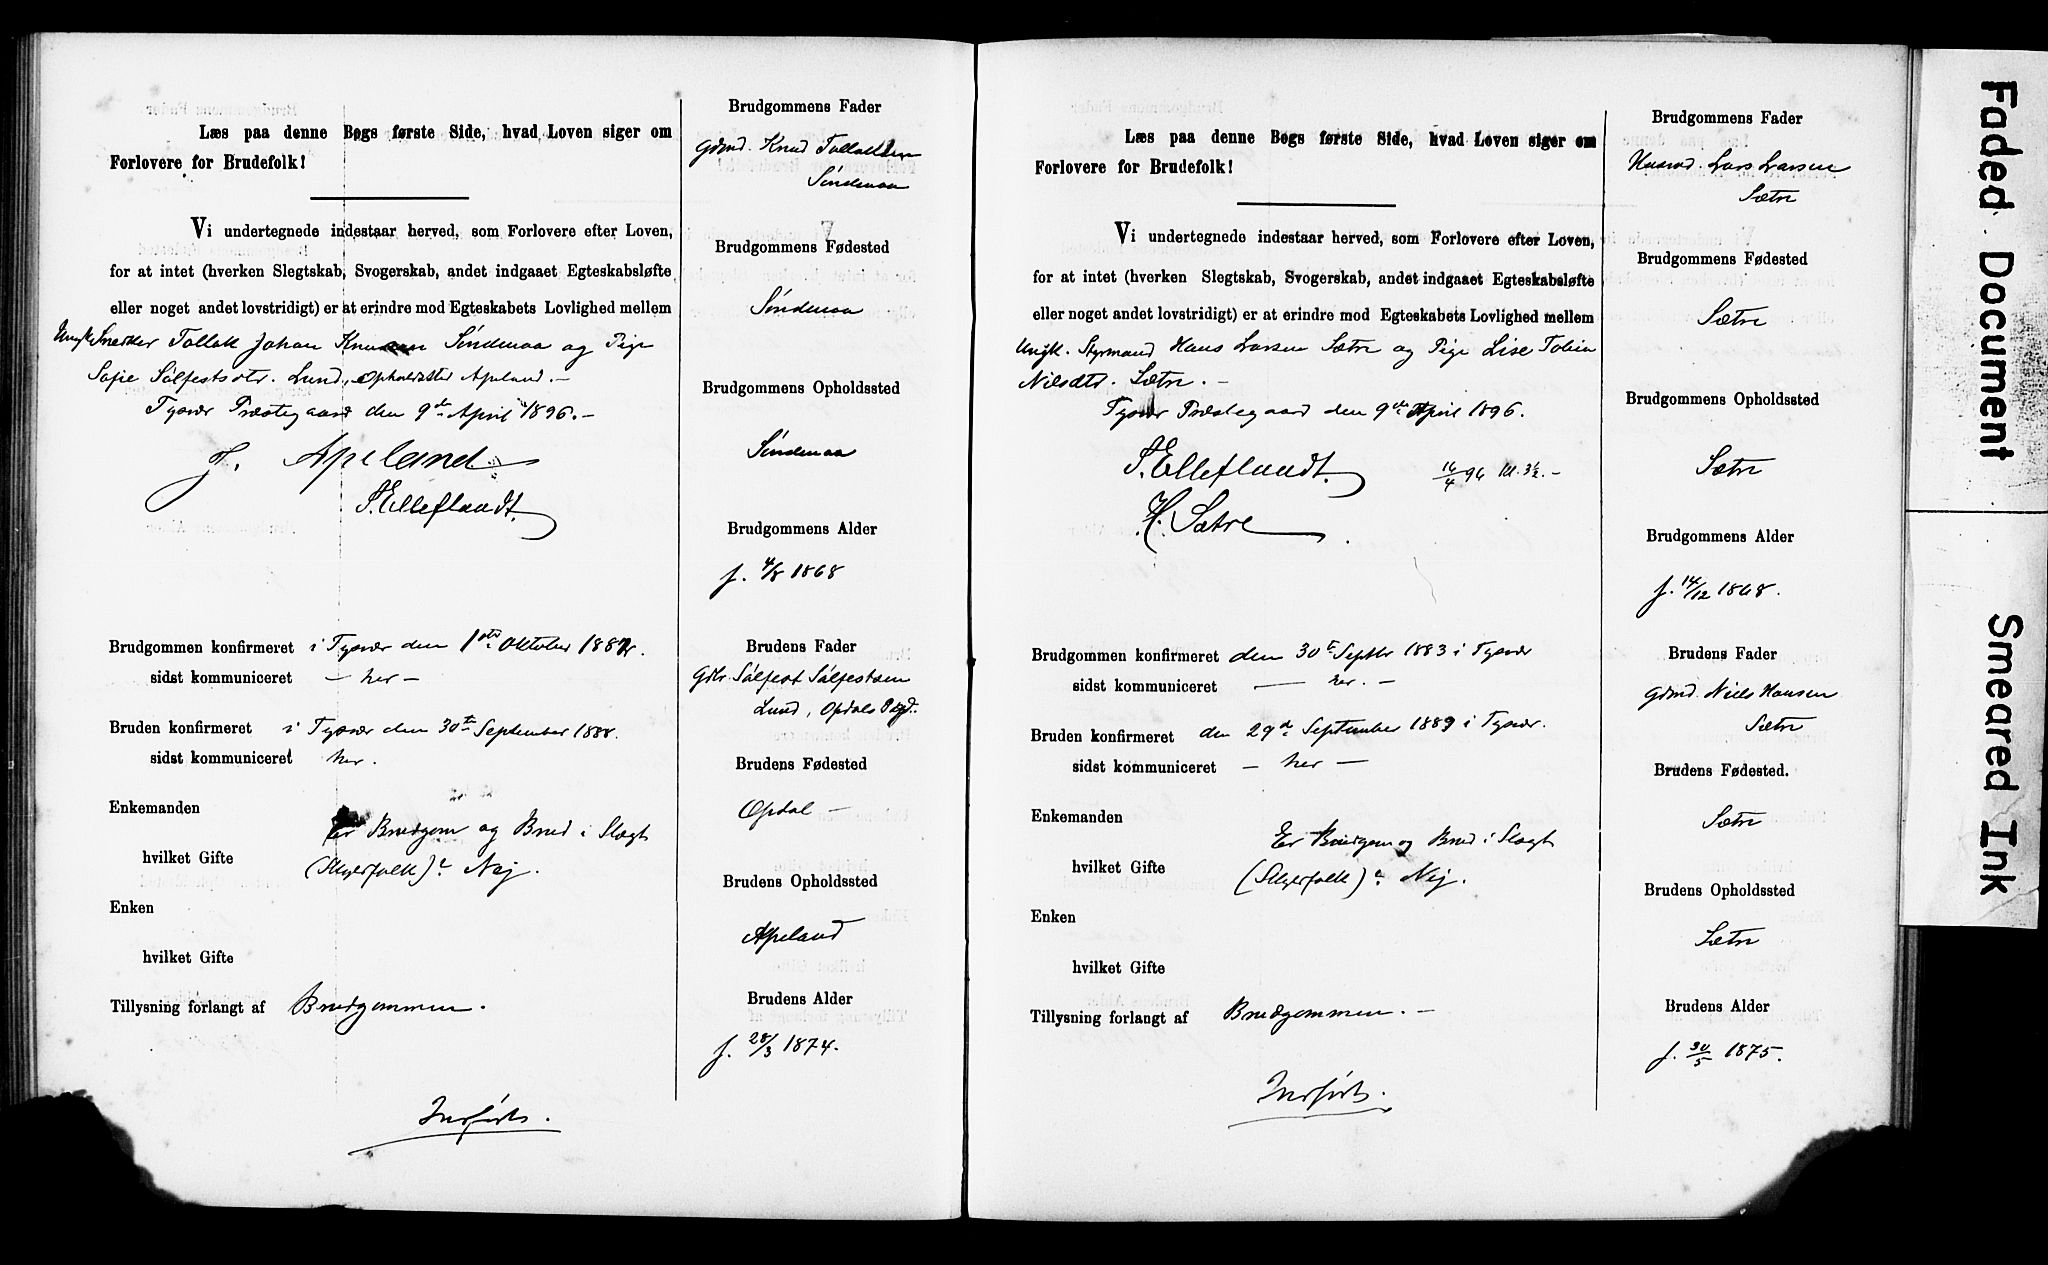 Læs paa denne Bogs første Side, hvad Loven siger om
Forlovere for Brudefolk!
Vi undertegnede indestaar herved, som Forlovere efter Loven,
for at intet (hverken Slegtskab, Svogerskab, andet indgaaet Egteskabsløfte
eller noget andet lovstridigt) er at erindre mod Egteskabets Lovlighed mellem
Ungk. Snedker Tollak Johan Knudsen Søndenaa og Pige
Sofie Sølfestsdtr. Lund, Opholdssted Apeland. —
Tysvær Præstegaard den 9de April 1896. —
J. Apeland
S. Elleflaadt.
Brudgommen konfirmeret i Tysvær den 1ste Oktober 1882.
sidst kommuniceret — her —
Bruden konfirmeret i Tysvær den 30te September 1888.
sidst kommuniceret her.
Enkemanden
Er Brudgom og Brud i Slægt
hvilket Gifte
(Skyldfolk)? Nej.
Enken
hvilket Gifte
Tillysning forlangt af Brudgommen.
Indførts.
Brudgommens Fader
Gdmd. Knud Tollaksen
Søndenaa
Brudgommens Fødested
Søndenaa
Brudgommens Opholdssted
Søndenaa
Brudgommens Alder
f. 4/8 1868
Brudens Fader
Gdbr. Sølfest Sølfestsen
Lund, Opdals Pgd.
Brudens Fødested
Opdal —
Brudens Opholdssted
Apeland
Brudens Alder
f. 28/3 1874.
Læs paa denne Bogs første Side, hvad Loven siger om
Forlovere for Brudefolk!
Vi undertegnede indestaar herved, som Forlovere efter Loven,
for at intet (hverken Slegtskab, Svogerskab, andet indgaaet Egteskabsløfte
eller noget andet lovstridigt) er at erindre mod Egteskabets Lovlighed mellem
Ungk. Styrmand Hans Larsen Sætre og Pige Lise Tobia
Nilsdtr. Sætre. —
Tysvær Præstegaard den 9de April 1896.
S. Elleflaadt. 16/4 96 Kl. 3½. —
H. Sætre
Brudgommen konfirmeret den 30te Septbr 1883 i Tysvær
sidst kommuniceret — her. —
Bruden konfirmeret den 29de September 1889 i Tysvær.
sidst kommuniceret — her —
Enkemanden
Er Brudgom og Brud i Slægt
hvilket Gifte
(Skyldfolk)? Nej.
Enken
hvilket Gifte
Tillysning forlangt af Brudgommen. —
Indførts.
Brudgommens Fader
Husmd. Lars Larsen
Sætre
Brudgommens Fødested
Sætre
Brudgommens Opholdssted
Sætre
Brudgommens Alder
f. 14/12 1868.
Brudens Fader
Gdmd. Niels Hansen
Sætre
Brudens Fødested.
Sætre
Brudens Opholdssted
Sætre
Brudens Alder
f. 30/5 1875.
Faded Document
Smeared Ink